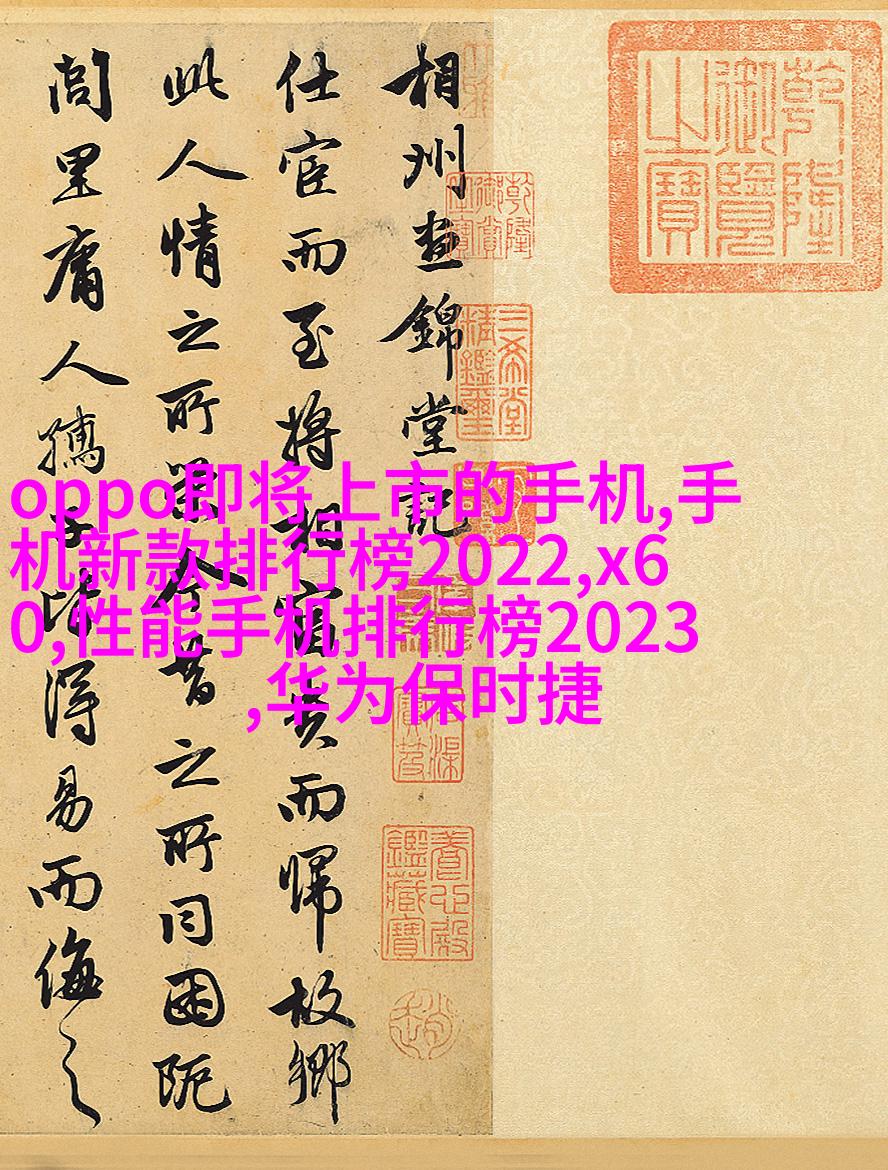 乾隆御覽之寶
相州晝錦堂記
仕宦而至將相富貴而歸故鄉
此人情之所榮今昔之所同困阨
閭里庸人孺子皆得易而侮之
三希堂精鑑璽
石渠寶笈
養心殿鑑藏寶
趙
oppo即将上市的手机,手
机新款排行榜2022,x6
0,性能手机排行榜2023
,华为保时捷